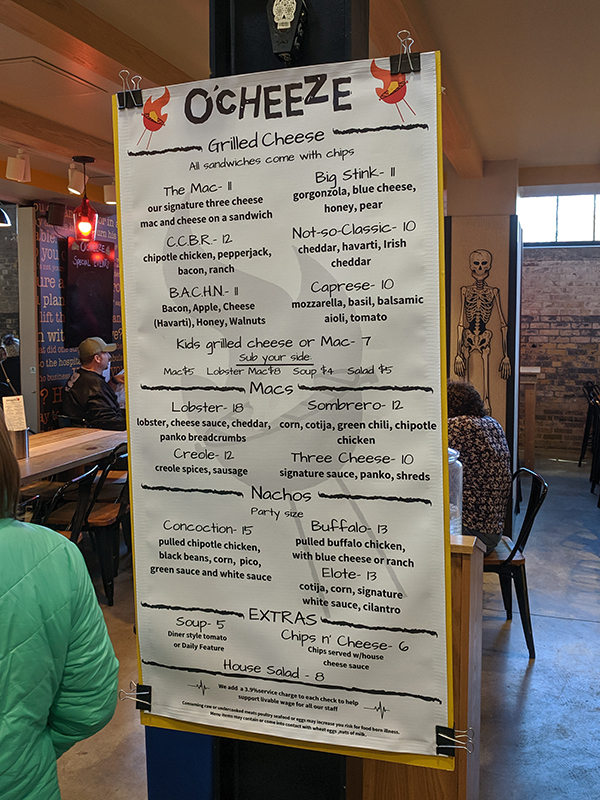 O'CHEEZE
Grilled Cheese
All sandwiches come with chips
The Mac- 11
our signature three cheese
mac and cheese on a sandwich
Big Stink- 11
gorgonzola, blue cheese,
honey, pear
C.C.B.R.- 12
chipotle chicken, pepperjack,
bacon, ranch
Not-so-Classic- 10
cheddar, havarti, Irish
cheddar
B.A.C.H.N.- 11
Bacon, Apple, Cheese
(Havarti), Honey, Walnuts
Caprese- 10
mozzarella, basil, balsamic
aioli, tomato
Kids grilled cheese or Mac- 7
Sub your side:
Mac$5 Lobster Mac$8 Soup $4 Salad $5
Macs
Lobster- 18
lobster, cheese sauce, cheddar,
panko breadcrumbs
Sombrero- 12
corn, cotija, green chili, chipotle
chicken
Creole- 12
creole spices, sausage
Three Cheese- 10
signature sauce, panko, shreds
Nachos
Party size
Concoction- 15
pulled chipotle chicken,
black beans, corn, pico,
green sauce and white sauce
Buffalo- 13
pulled buffalo chicken,
with blue cheese or ranch
Elote- 13
cotija, corn, signature
white sauce, cilantro
EXTRAS
Soup- 5
Diner style tomato
or Daily Feature
Chips n' Cheese- 6
Chips served w/house
cheese sauce
House Salad - 8
We add a 3.9%service charge to each check to help
support livable wage for all our staff
Consuming raw or undercooked meats poultry seafood or eggs may increase you risk for food born illness.
Menu items may contain or come into contact with wheat eggs ,nuts of milk.